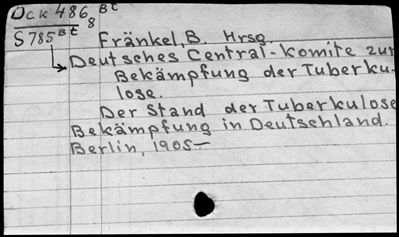 Ock 486 Bt
8
S785 Bt Fränkel, B. Hrsg.
Deutsches Central-Komite zur
Bekämpfung der Tuberku-
lose.
Der Stand der Tuberkulose
Bekämpfung in Deutschland.
Berlin, 1905-